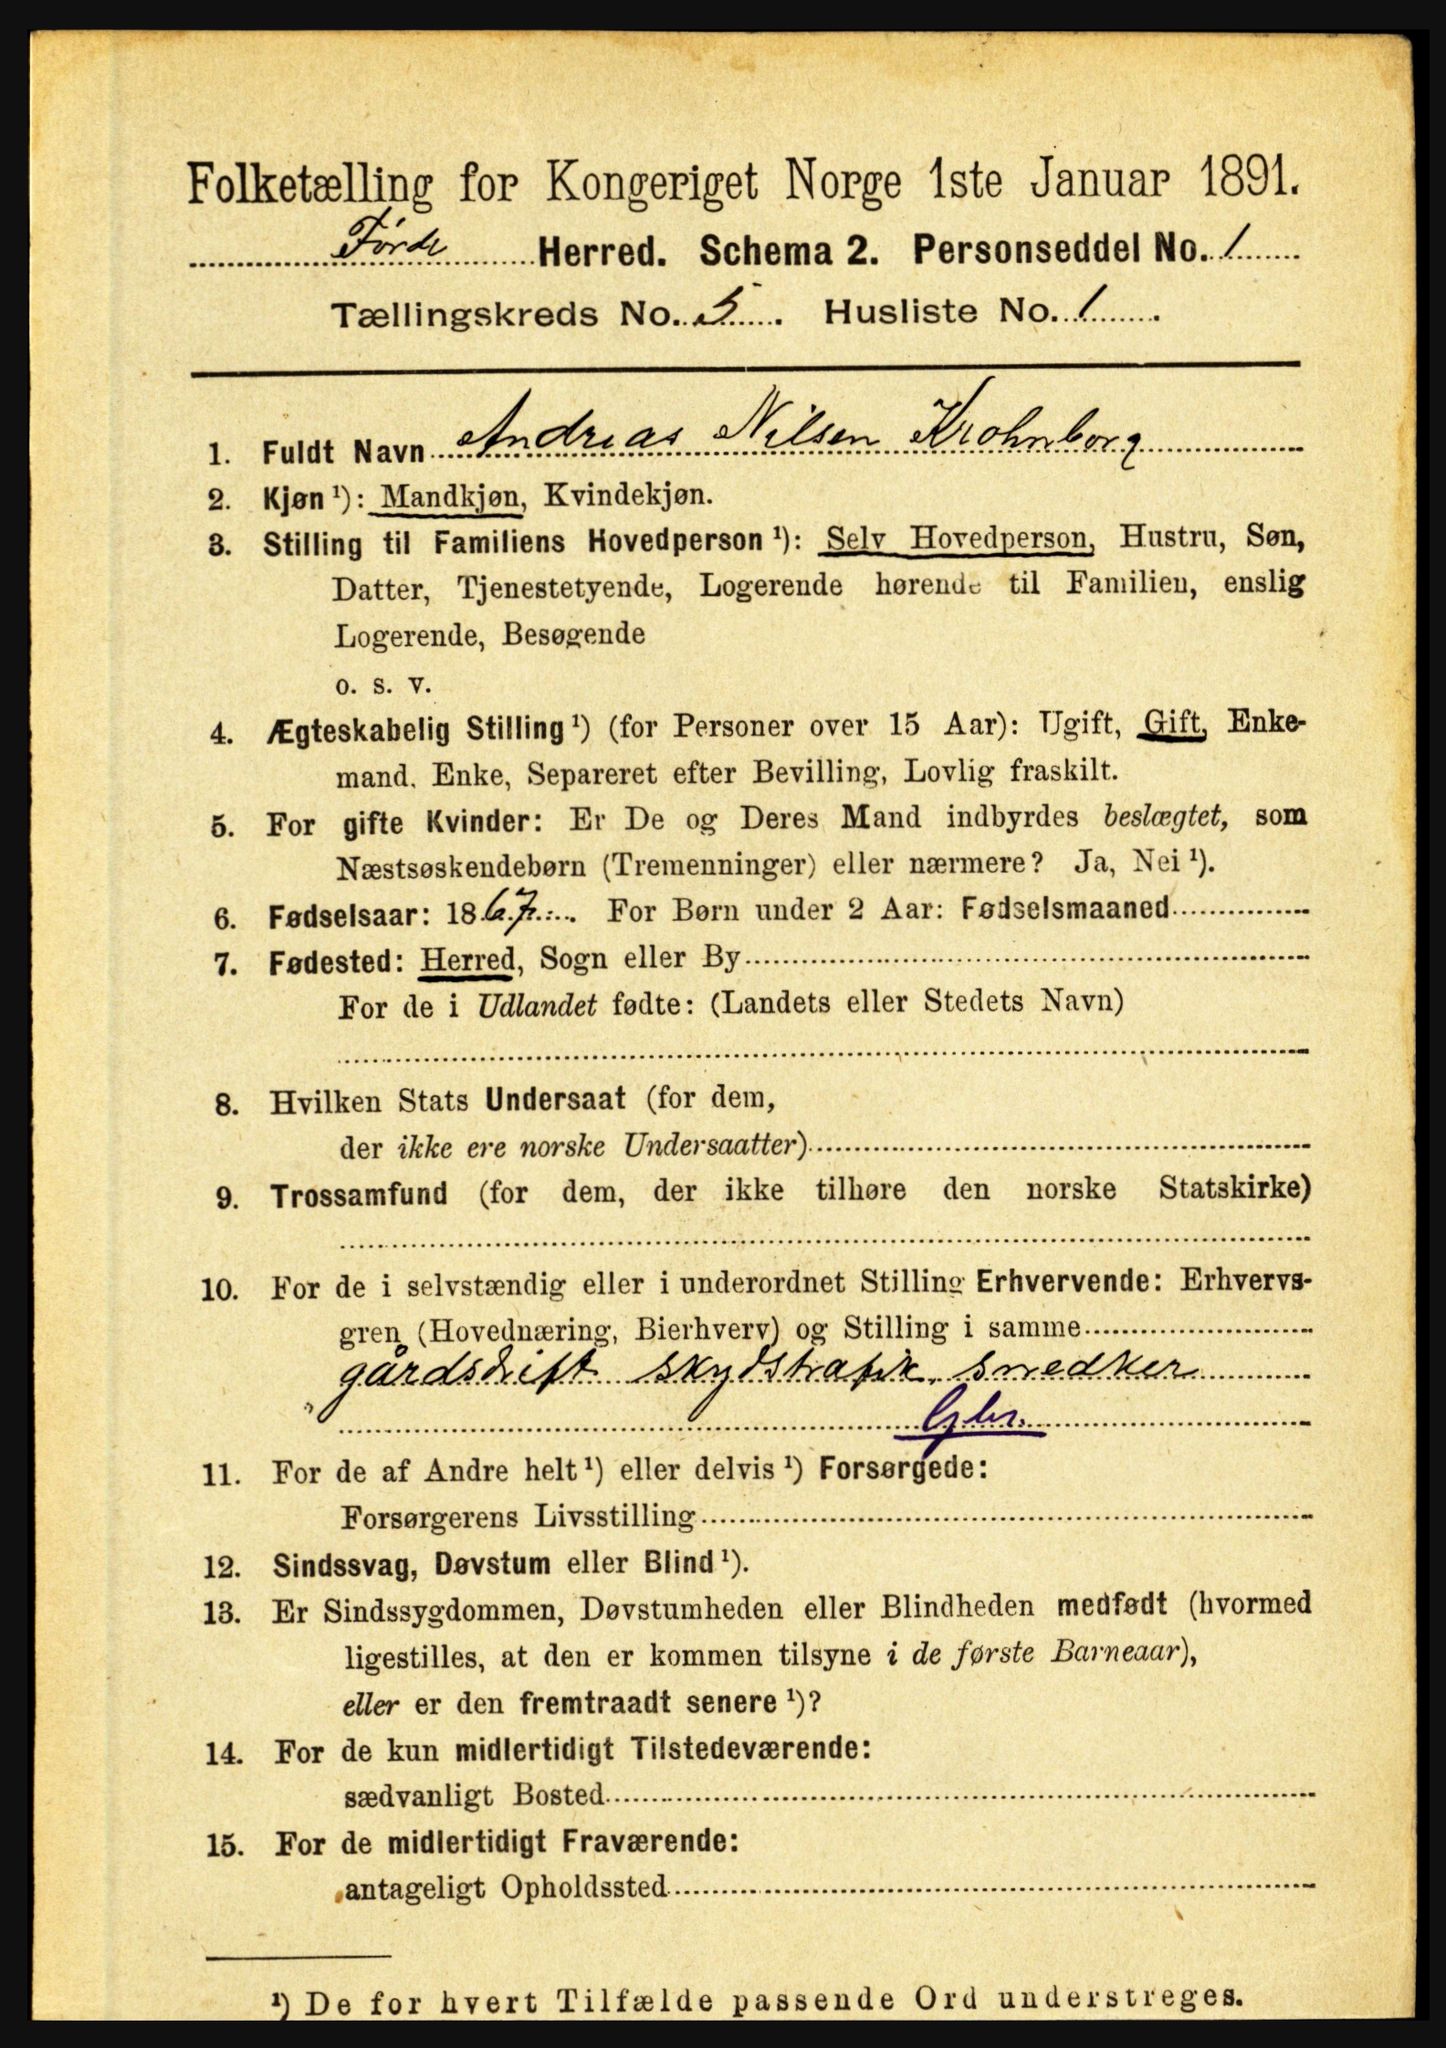 Folketælling for Kongeriget Norge 1ste Januar 1891.
Førde Herred. Schema 2. Personseddel No. 1
Tællingskreds No. 5. Husliste No. 1.
1. Fuldt Navn Andreas Nilsen Krohnborg
2. Kjøn ¹): Mandkjøn, Kvindekjøn.
3. Stilling til Familiens Hovedperson ¹): Selv Hovedperson, Hustru, Søn,
Datter, Tjenestetyende, Logerende hørende til Familien, enslig
Logerende, Besøgende
o. s. v.
4. Ægteskabelig Stilling ¹) (for Personer over 15 Aar): Ugift, Gift, Enke-
mand, Enke, Separeret efter Bevilling, Lovlig fraskilt.
5. For gifte Kvinder: Er De og Deres Mand indbyrdes beslægtet, som
Næstsøskendebørn (Tremenninger) eller nærmere? Ja, Nei ¹).
6. Fødselsaar: 1867. For Børn under 2 Aar: Fødselsmaaned
7. Fødested: Herred, Sogn eller By
For de i Udlandet fødte: (Landets eller Stedets Navn)
8. Hvilken Stats Undersaat (for dem,
der ikke ere norske Undersaatter)
9. Trossamfund (for dem, der ikke tilhøre den norske Statskirke)
10. For de i selvstændig eller i underordnet Stilling Erhvervende: Erhvervs-
gren (Hovednæring, Bierhverv) og Stilling i samme
gårdsdrift skydstrafik, snedker
Gbr.
11. For de af Andre helt ¹) eller delvis ¹) Forsørgede:
Forsørgerens Livsstilling
12. Sindssvag, Døvstum eller Blind ¹).
13. Er Sindssygdommen, Døvstumheden eller Blindheden medfødt (hvormed
ligestilles, at den er kommen tilsyne i de første Barneaar),
eller er den fremtraadt senere ¹)?
14. For de kun midlertidigt Tilstedeværende:
sædvanligt Bosted
15. For de midlertidigt Fraværende:
antageligt Opholdssted
¹) De for hvert Tilfælde passende Ord understreges.